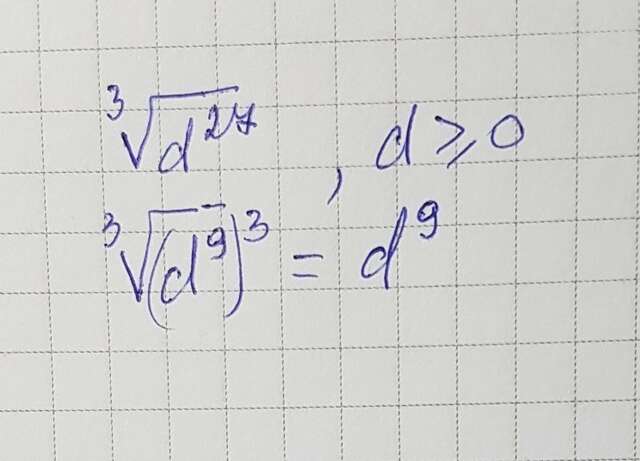 ∛(d²⁷) , d ⩾ 0
∛((d⁹)³) = d⁹